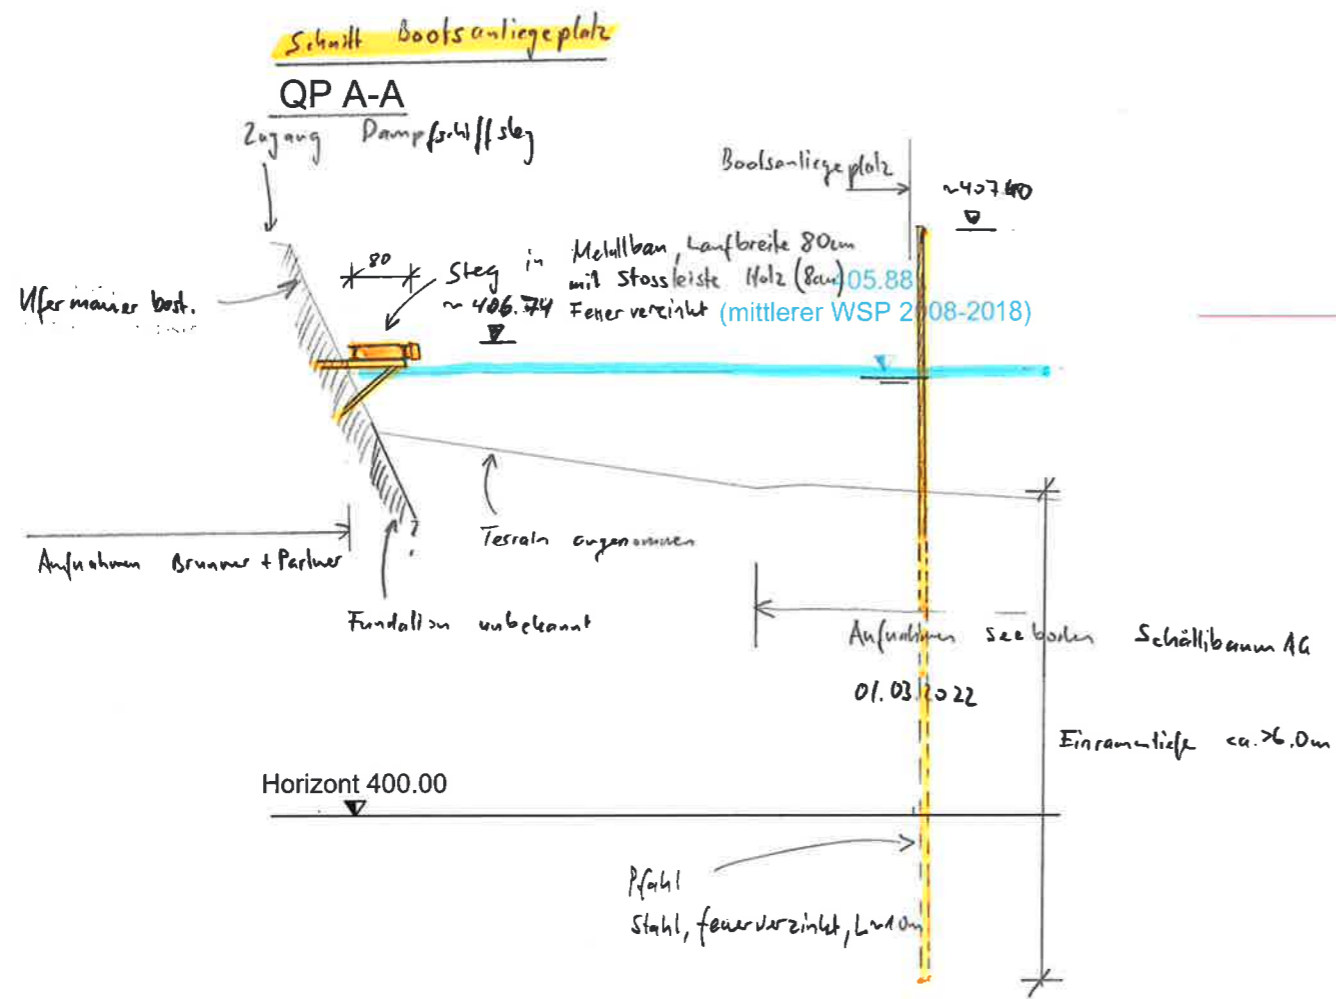 Schnitt Bootsanliegeplatz
QP A-A
Zugang Dampfschiffsteg
Bootsanliegeplatz
~407.40
80
Steg in Metallbau, Laufbreite 80cm
mit Stossleiste Holz (8cm)
405.88
Ufermauer best.
~ 406.74 Feuerverzinkt
(mittlerer WSP 2008-2018)
Terrain angenommen
?
Aufnahmen Brunner + Partner
Fundation unbekannt
Aufnahmen Seeboden Schällibaum AG
01.03.2022
Einrammtiefe ca. >6.0m
Horizont 400.00
Pfahl
Stahl, feuerverzinkt, L~10m